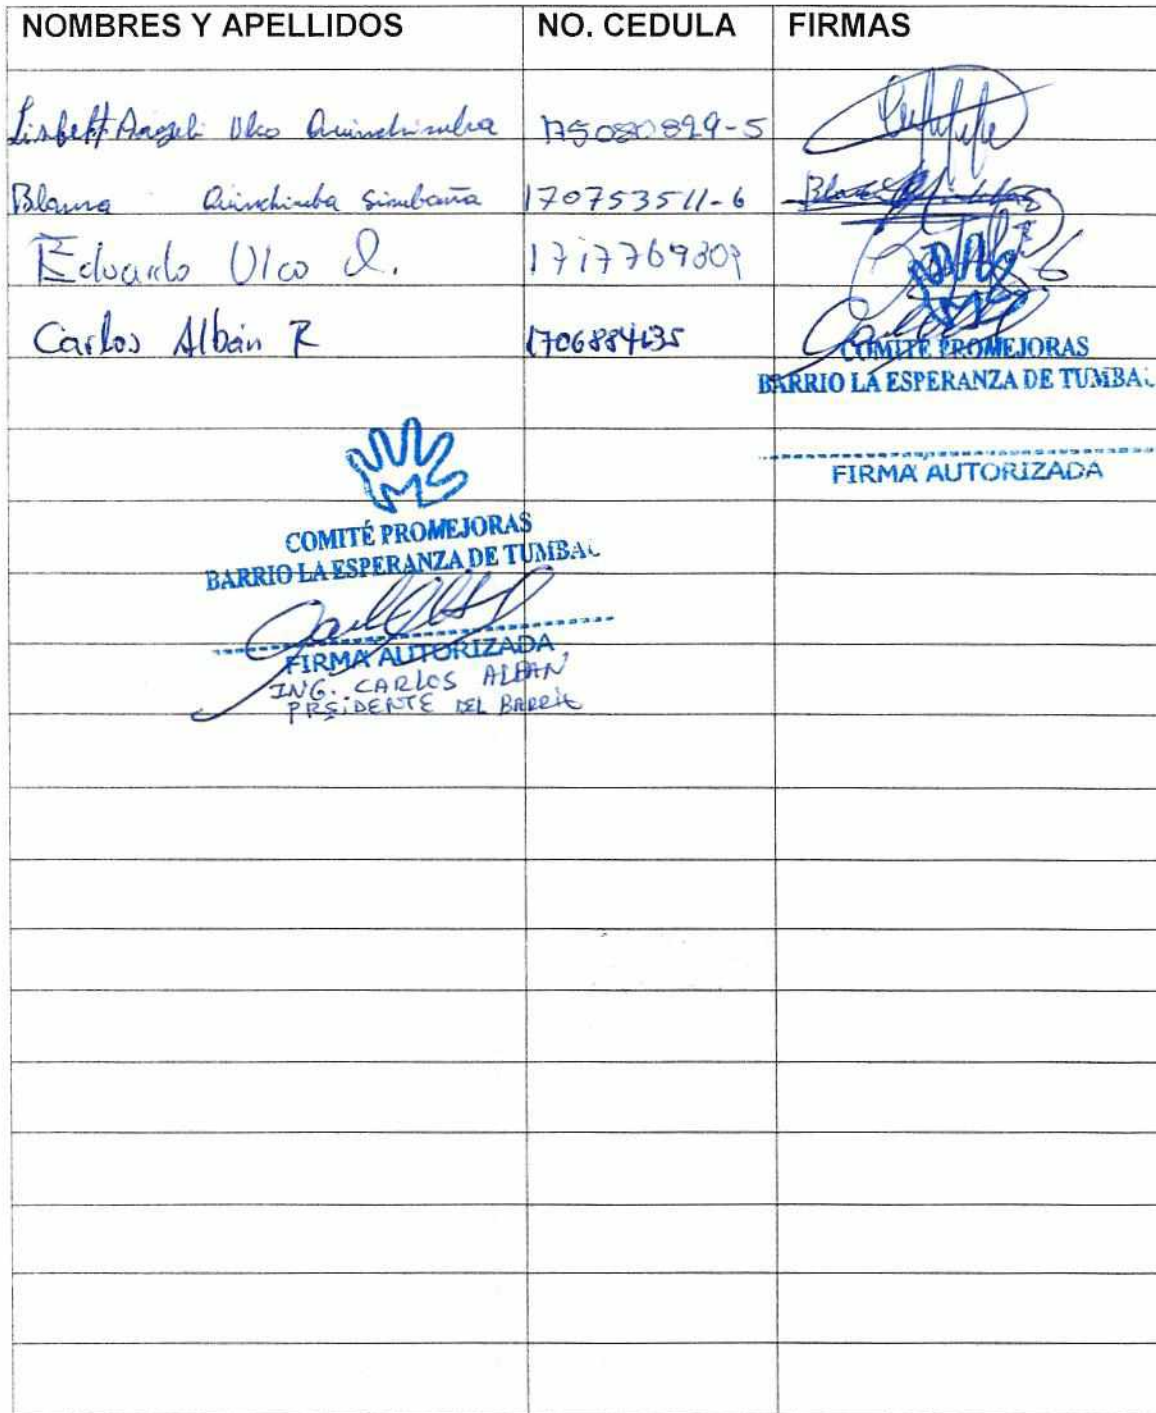 NOMBRES Y APELLIDOS NO. CEDULA FIRMAS
Lisbett Angeli Ulco Quinchimba 175080899-5
Blanca Quinchimba Simbaña 170753511-6
Eduardo Ulco Q. 1717769309
Carlos Albán R 1706884135
COMITÉ PROMEJORAS
BARRIO LA ESPERANZA DE TUMBAC
FIRMA AUTORIZADA
COMITÉ PROMEJORAS
BARRIO LA ESPERANZA DE TUMBAC
FIRMA AUTORIZADA
ING. CARLOS ALBAN
PRESIDENTE DEL BARRIO